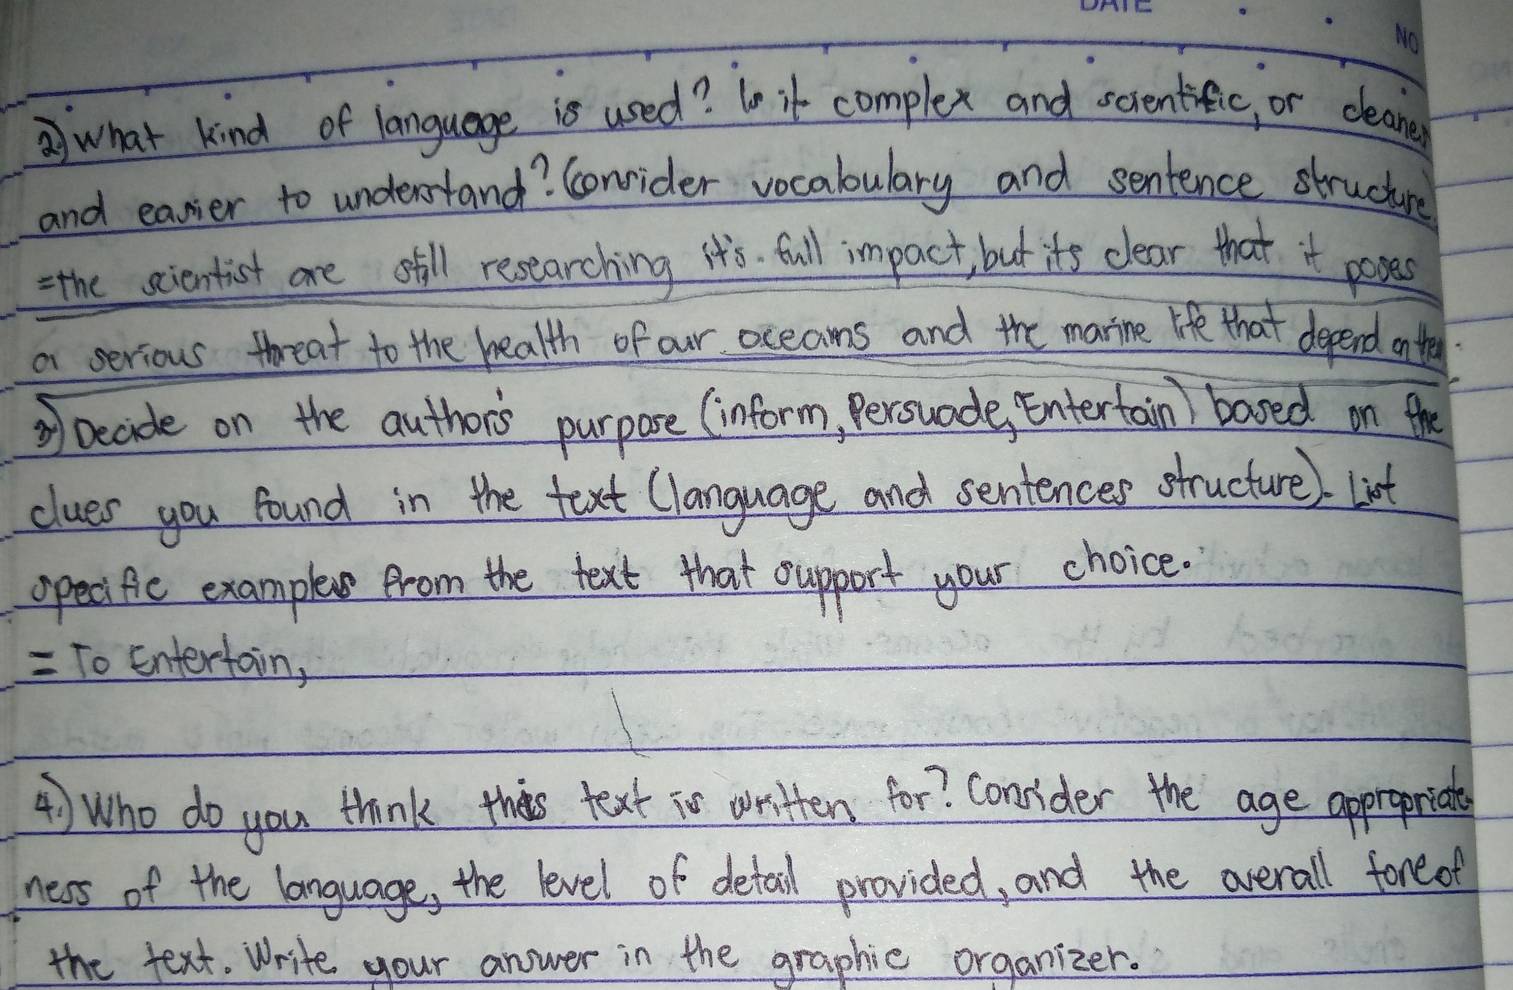 DATE
NO
2) What kind of language is used? Is it complex and scientific, or cleaner
and easier to understand? Consider vocabulary and sentence structure
=the scientist are still researching it's full impact, but its clear that it poses
a serious threat to the health of our oceans and the marine life that depend on them.
3) Decide on the author's purpose (inform, Persuade, Entertain) based on the
clues you found in the text (language and sentences structure). List
specific examples from the text that support your choice.
= To Entertain,
4.) Who do you think this text is written for? Consider the age appropriate
ness of the language, the level of detail provided, and the overall tone of
the text. Write your answer in the graphic organizer.